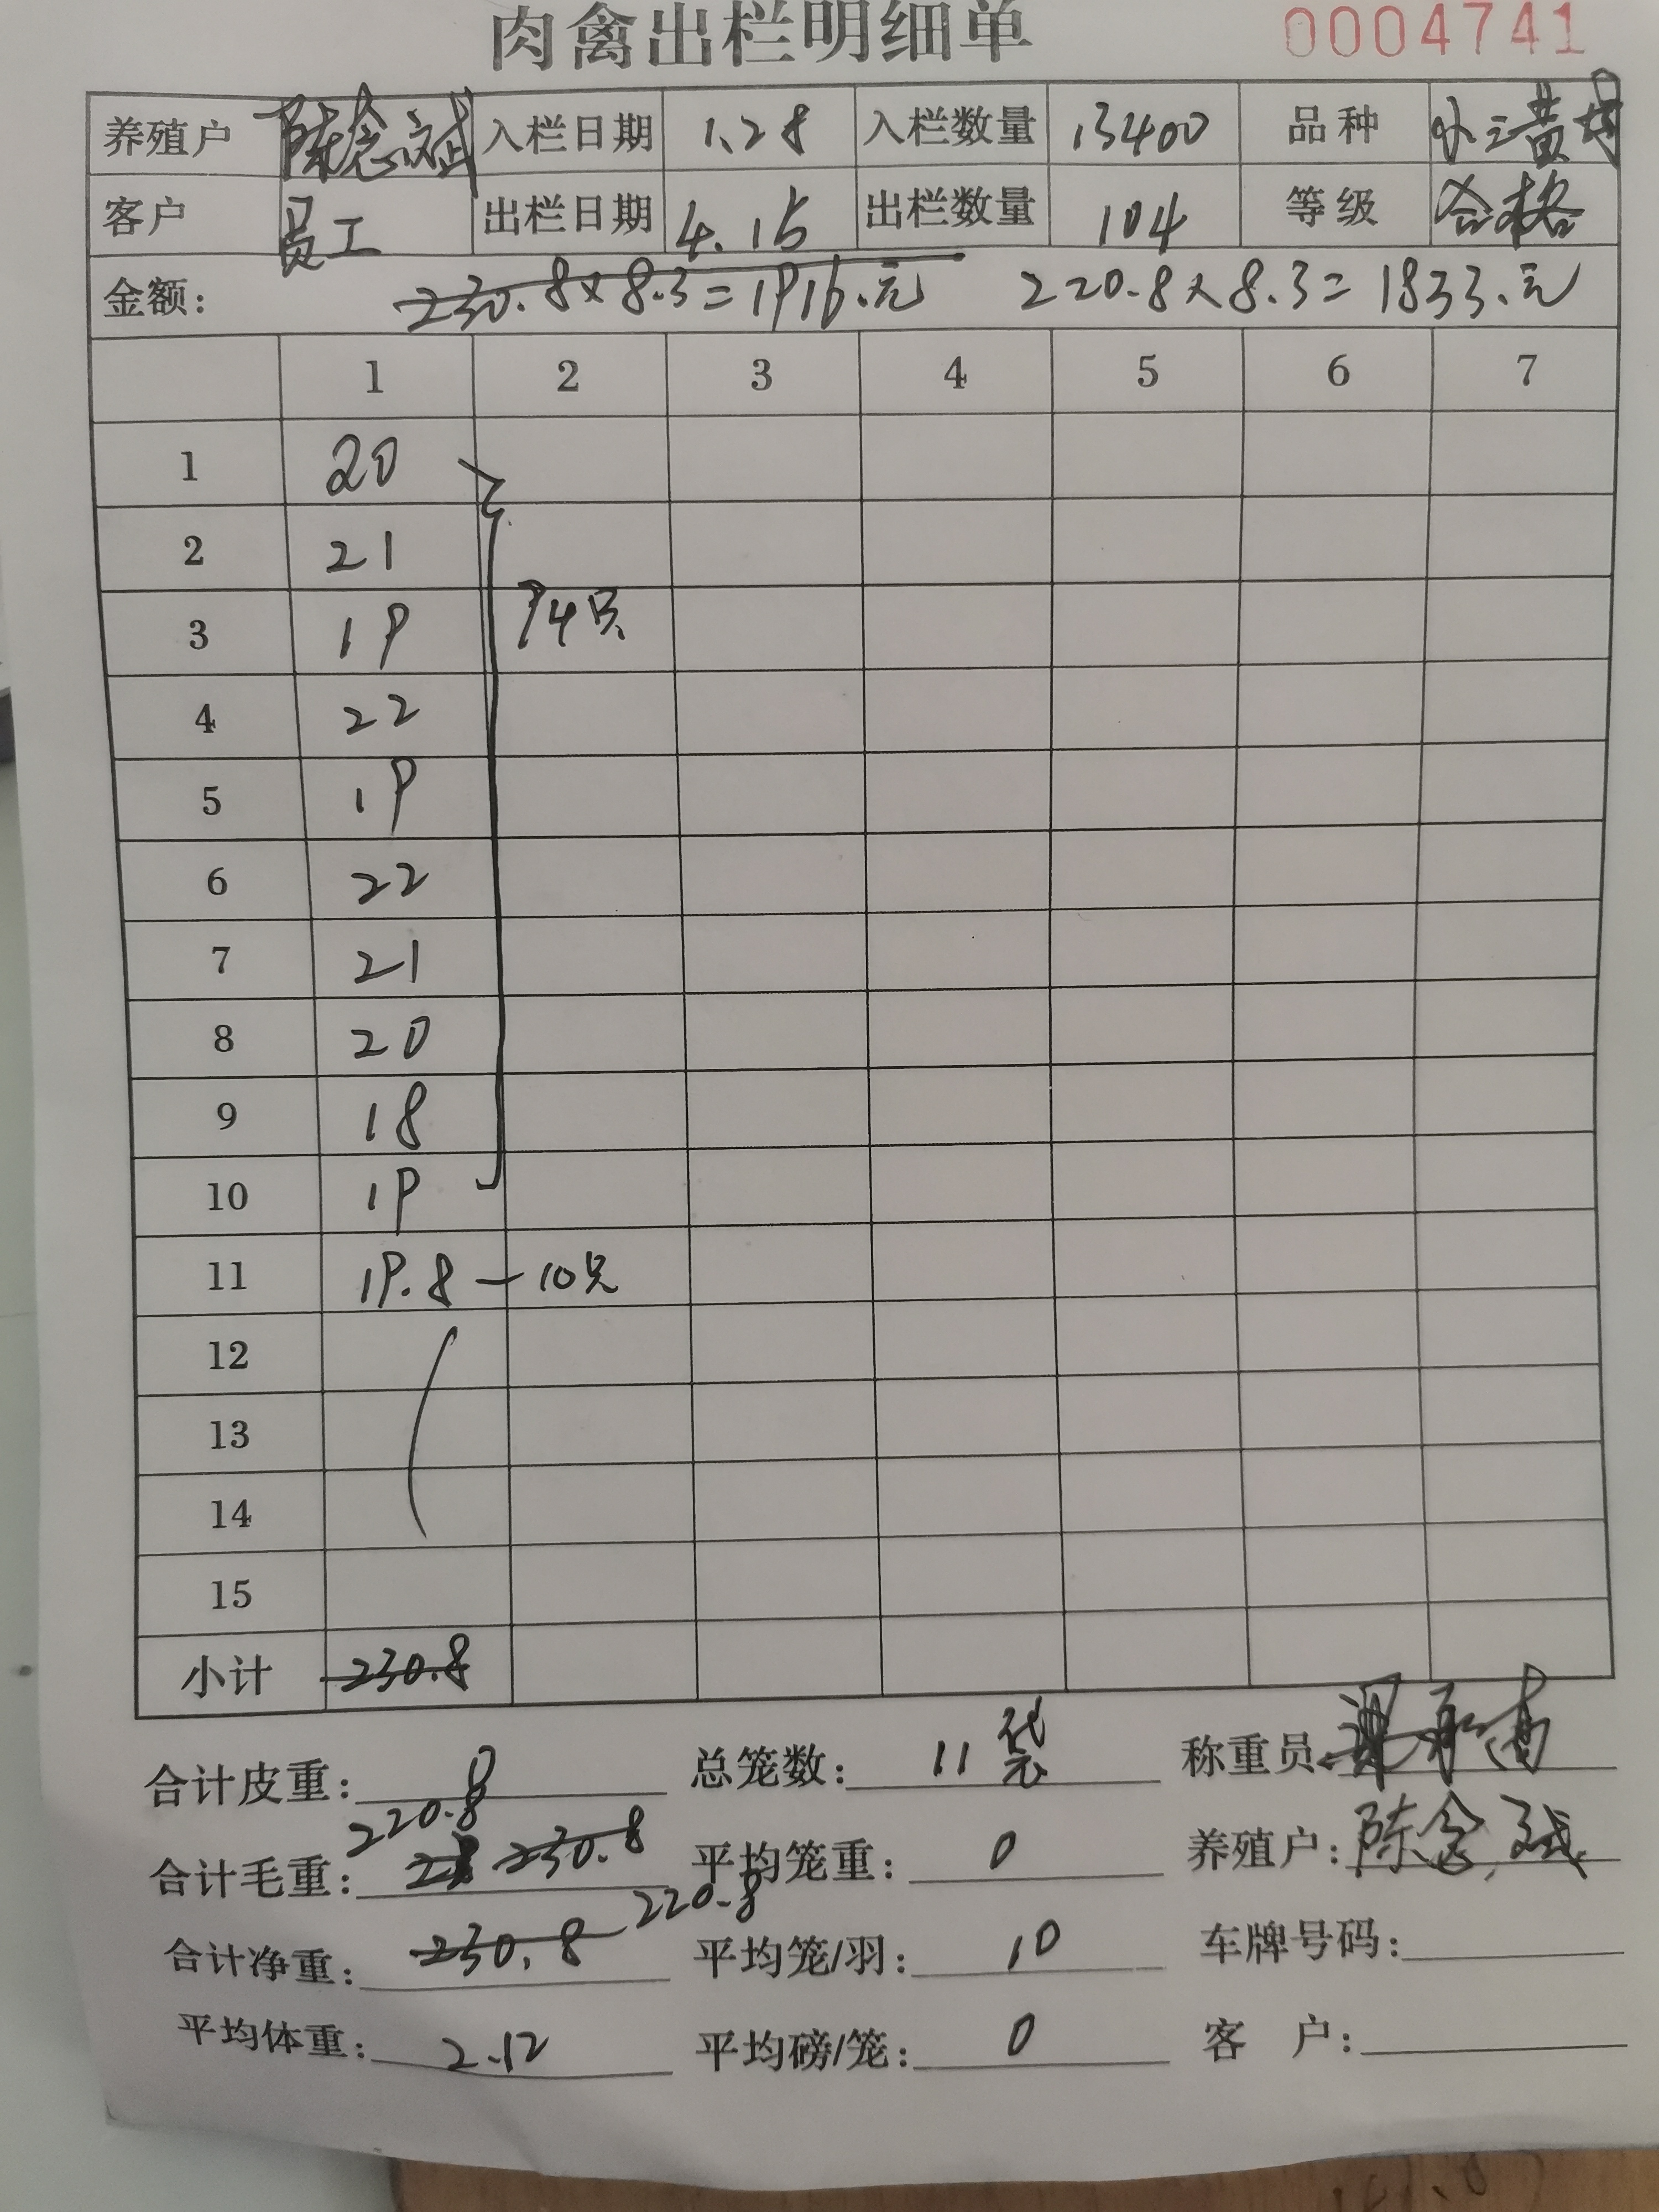 肉禽出栏明细单 0004741
养殖户 陈念斌 入栏日期 1.28 入栏数量 13400 品种 小三黄母
客户 员工 出栏日期 4.15 出栏数量 104 等级 合格
金额: 230.8×8.3=1916.元 220.8×8.3=1833.元
1 2 3 4 5 6 7
1 20
2 21
3 19 94只
4 22
5 19
6 22
7 21
8 20
9 18
10 19
11 19.8 — 10只
12
13
14
15
小计 230.8
合计皮重: 0 总笼数: 11袋 称重员:
合计毛重: 220.8 230.8 平均笼重: 0 养殖户: 陈念斌
合计净重: 230.8 220.8 平均笼/羽: 10 车牌号码:
平均体重: 2.12 平均磅/笼: 0 客户: